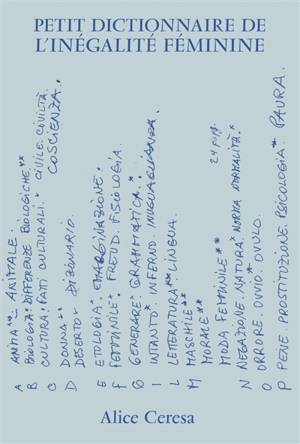 PETIT DICTIONNAIRE DE
L'INÉGALITÉ FÉMININE
A ANIMA** ANIMALE.
B BIOLOGIA* DIFFERENZE BIOLOGICHE.**
C CULTURA. FATI CULTURALI. CIVILE. CIVILTÀ.
COSCIENZA.
D DONNA**
DESERTO DIZIONARIO.
E ETOLOGIA. EMARGINAZIONE.
F FEMMINILE* FREUD. FISIOLOGIA.
G GENERARE* GRAMMATICA.*
I INTANTO* INFERNO. INUGUAGLIANZA.
L LETTERATURA** LINGUA.
M MASCHILE**
MORALE**
MODA FEMMINILE**
N NEGAZIONE. NATURA** NORMA NORMALITÀ.*
O ORRORE. OVVIO* OVULO.
P PENE. PROSTITUZIONE. PSICOLOGIA. PAURA.
Alice Ceresa